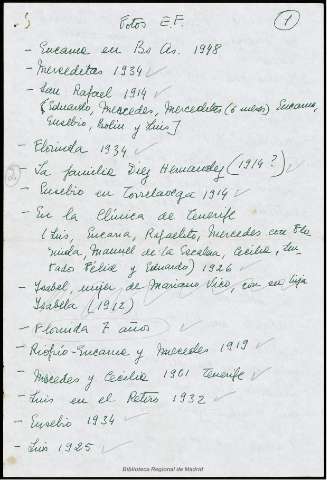 Fotos E.F.
1
- Encarna en Bs As. 1948
- Merceditas 1934
- San Rafael 1914
[Eduardo, Mercedes, Merceditas (6 meses) Encarna,
Eusebio, y Luis]
- Florinda 1934
- La familia Diez Hernandez (1914?)
- Eusebio en Torrelavega 1914
- En la Clínica de Tenerife
(Luis, Encarna, Rafaelito, Mercedes con Flo-
rinda, Manuel de la Escalera, Cecilia,
Félix y Eduardo) 1926
- Isabel, mujer de Mariano Vico, con su hija
Isabela (1912)
- Florinda 7 años
- Riofrío-Encarna y Mercedes 1919
- Mercedes y Cecilia 1961 Tenerife
- Luis en el Retiro 1932
- Eusebio 1934
- Luis 1925
Biblioteca Regional de Madrid